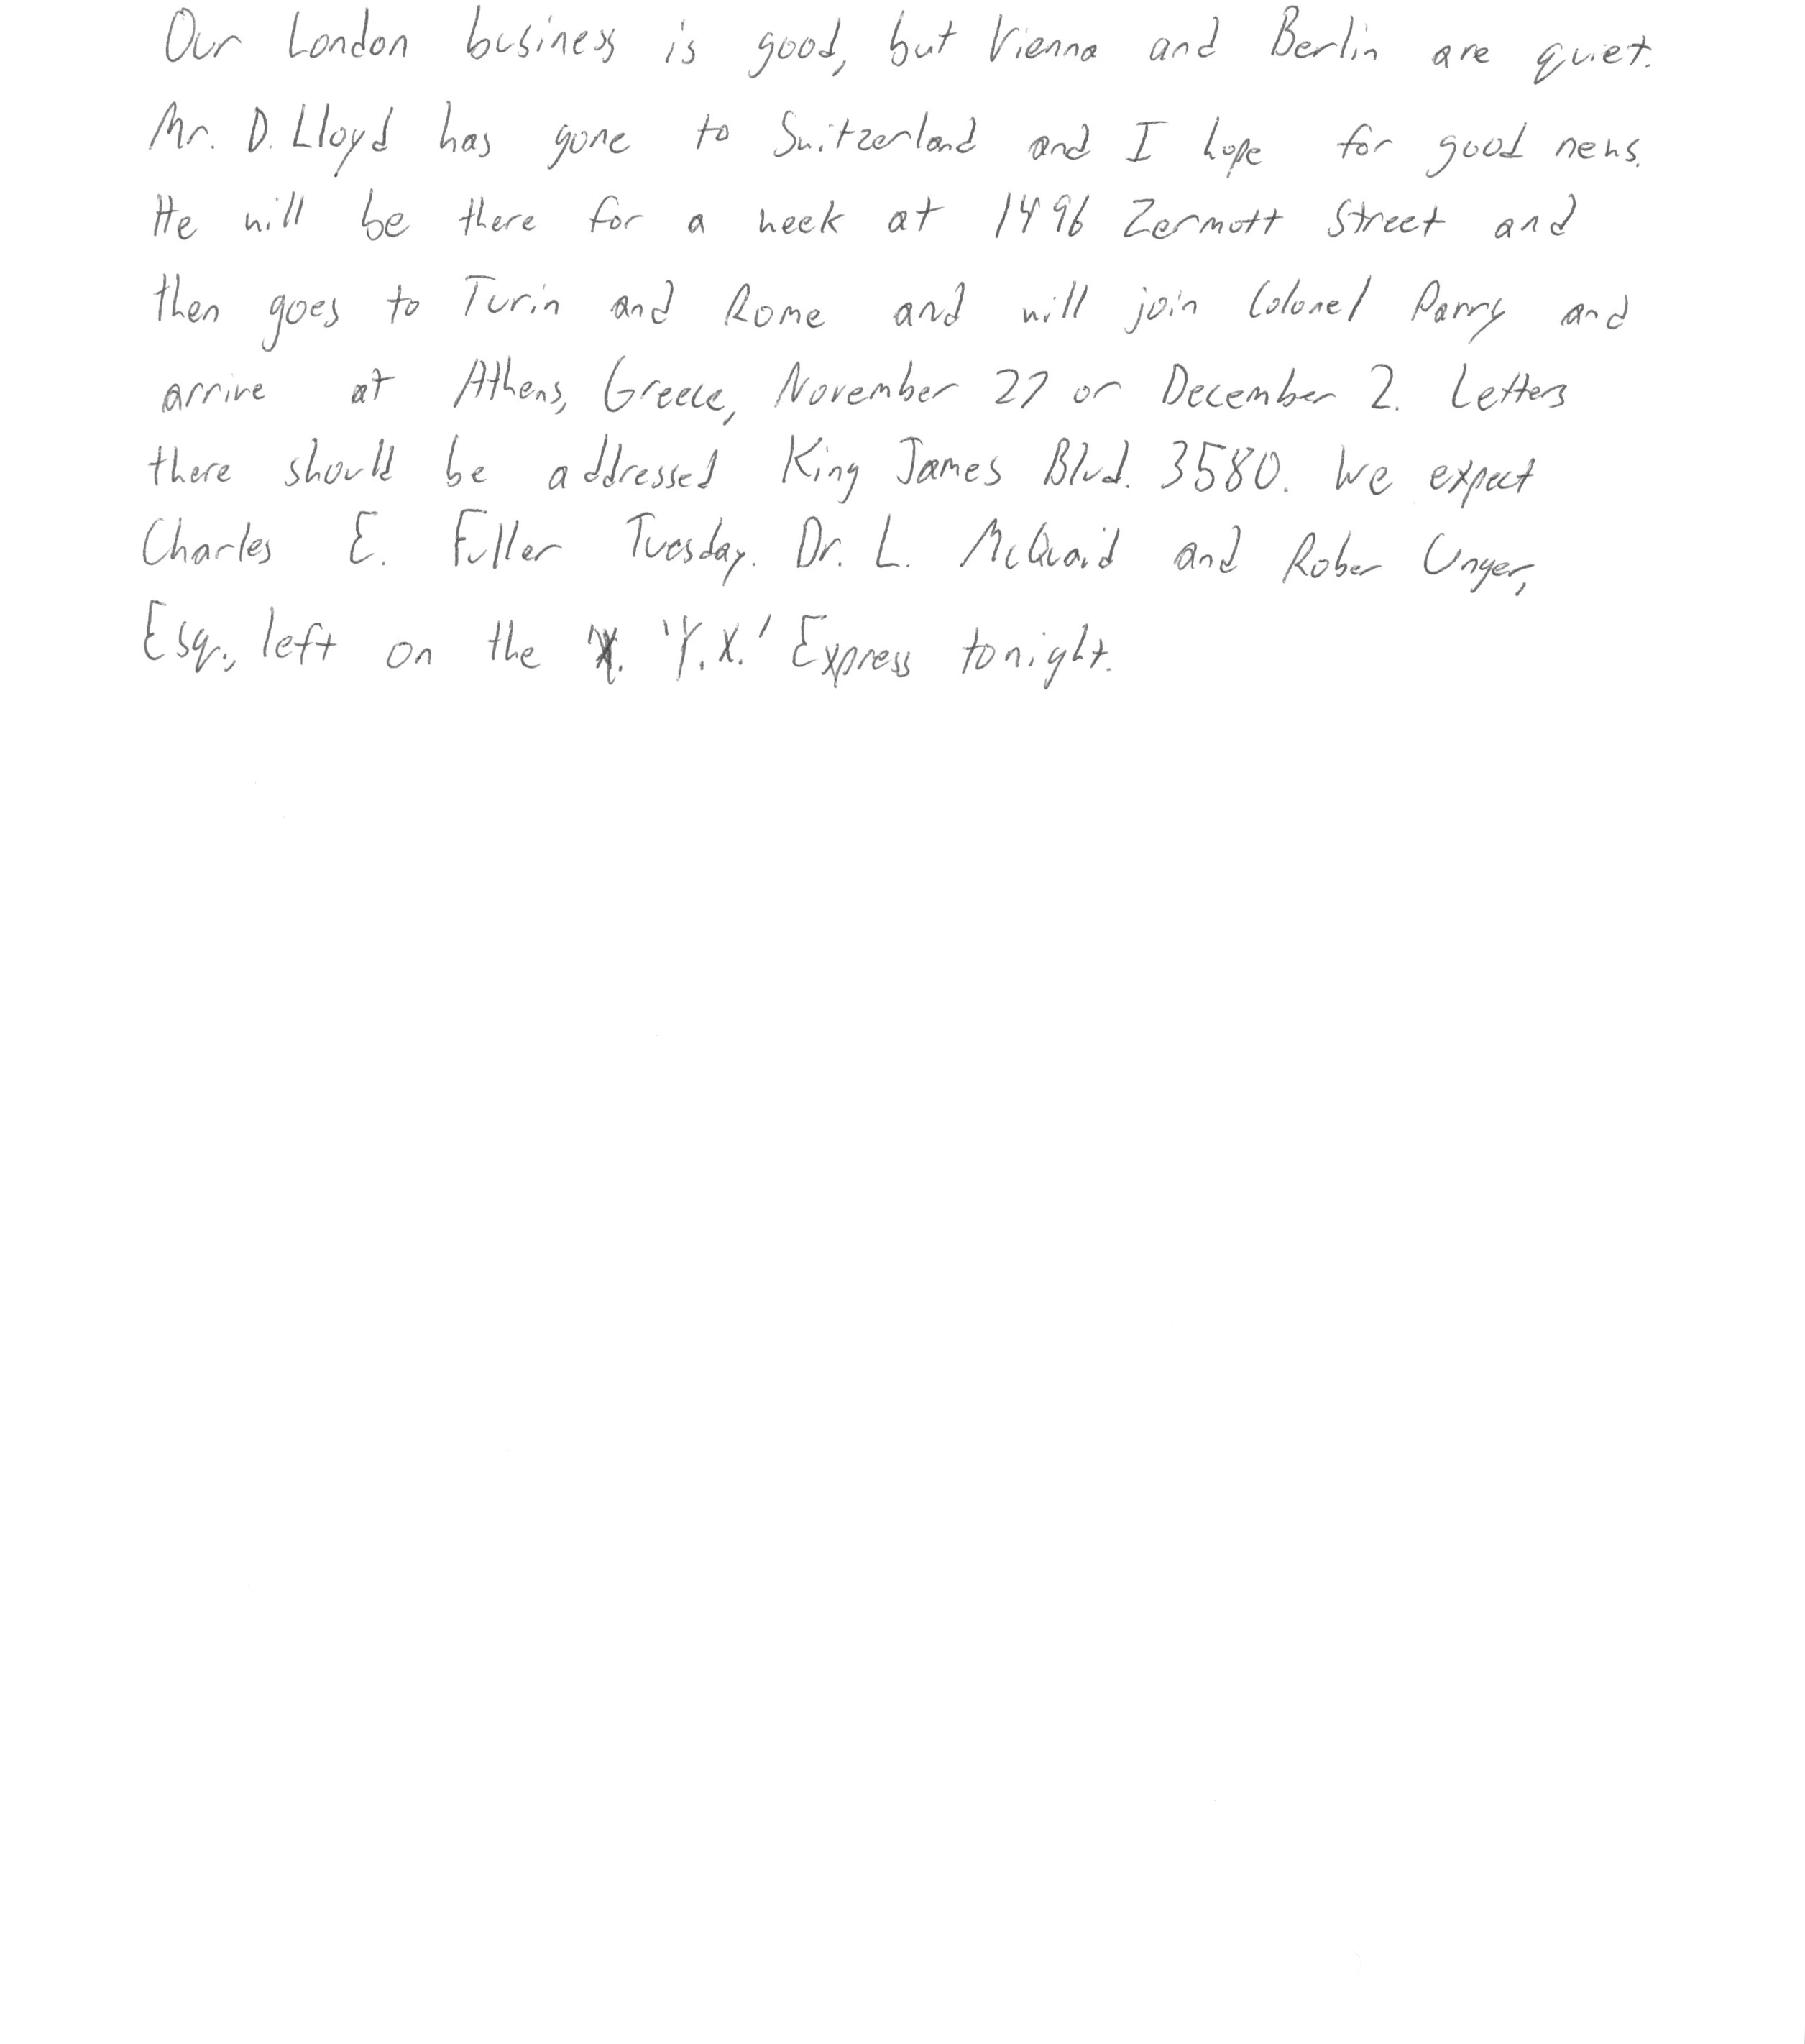 Our London business is good, but Vienna and Berlin are quiet.
Mr. D. Lloyd has gone to Switzerland and I hope for good news.
He will be there for a week at 1496 Zermott Street and
then goes to Turin and Rome and will join Colonel Parry and
arrive at Athens, Greece, November 27 or December 2. Letters
there should be addressed King James Blvd. 3580. We expect
Charles E. Fuller Tuesday. Dr. L. McQuaid and Rober Unger,
Esq., left on the 'Y.X.' Express tonight.